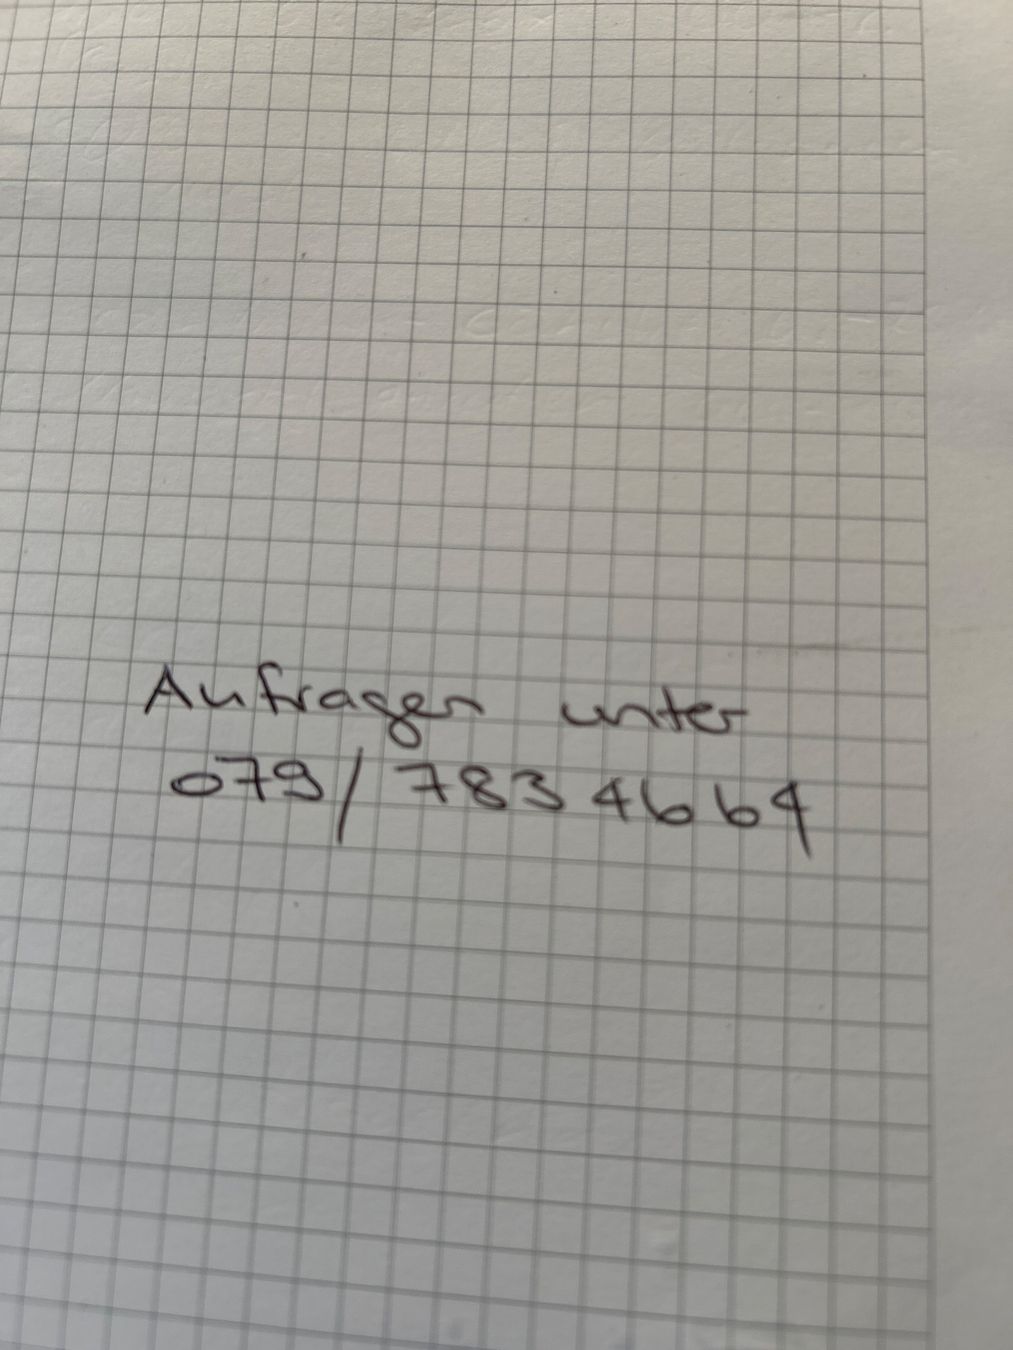 Anfragen unter
079/ 783 46 64